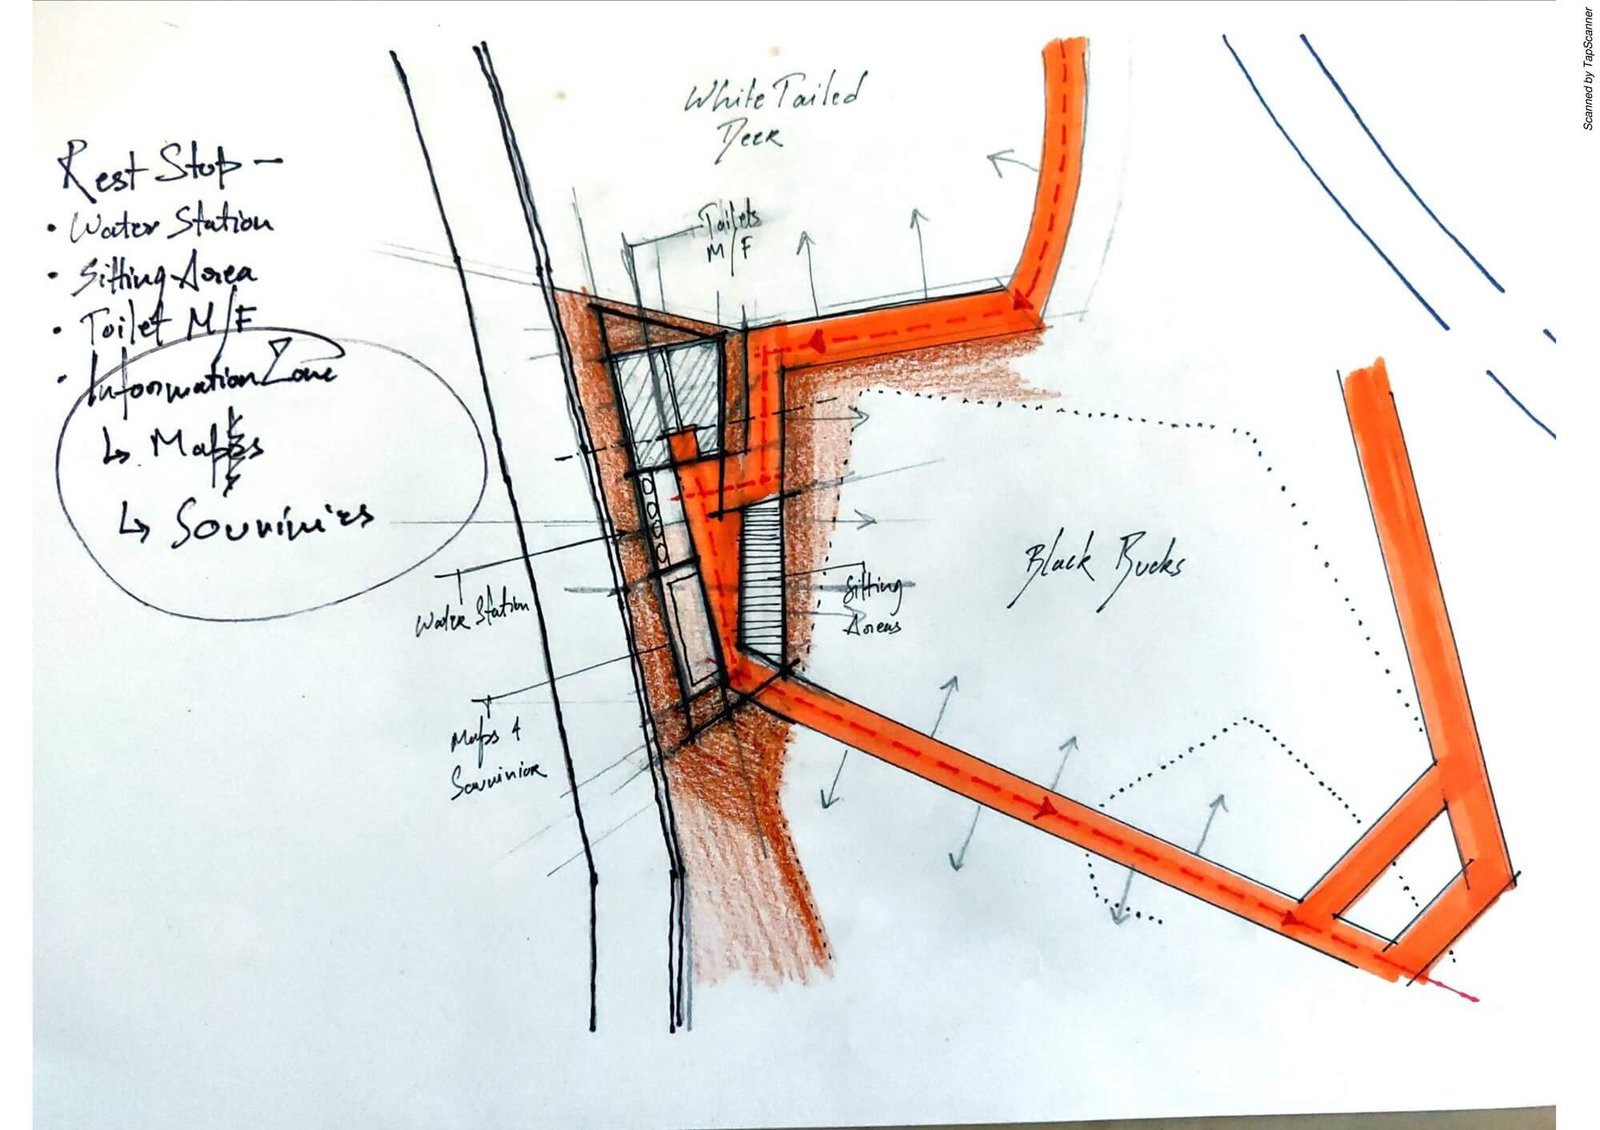 Rest Stop -
• Water Station
• Sitting Area
• Toilet M/F
• Information Zone
↳ Maps
↳ Souvinirs
White Tailed
Deer
Toilets
M/F
Black Bucks
Sitting
Areas
Water Station
Maps &
Souvinior
Scanned by TapScanner